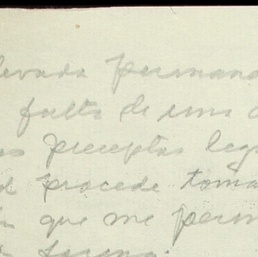 levada permane
falta de una
os preceptos leg
procede toma
que me perm